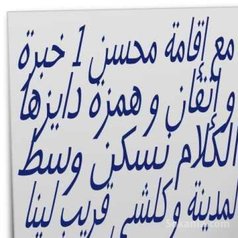 مع إقامة محسن 1 خبزة
و إتقان و همزه دايزها
الكلام نسكن وسط
لمدينة وكلشي قريب لينا